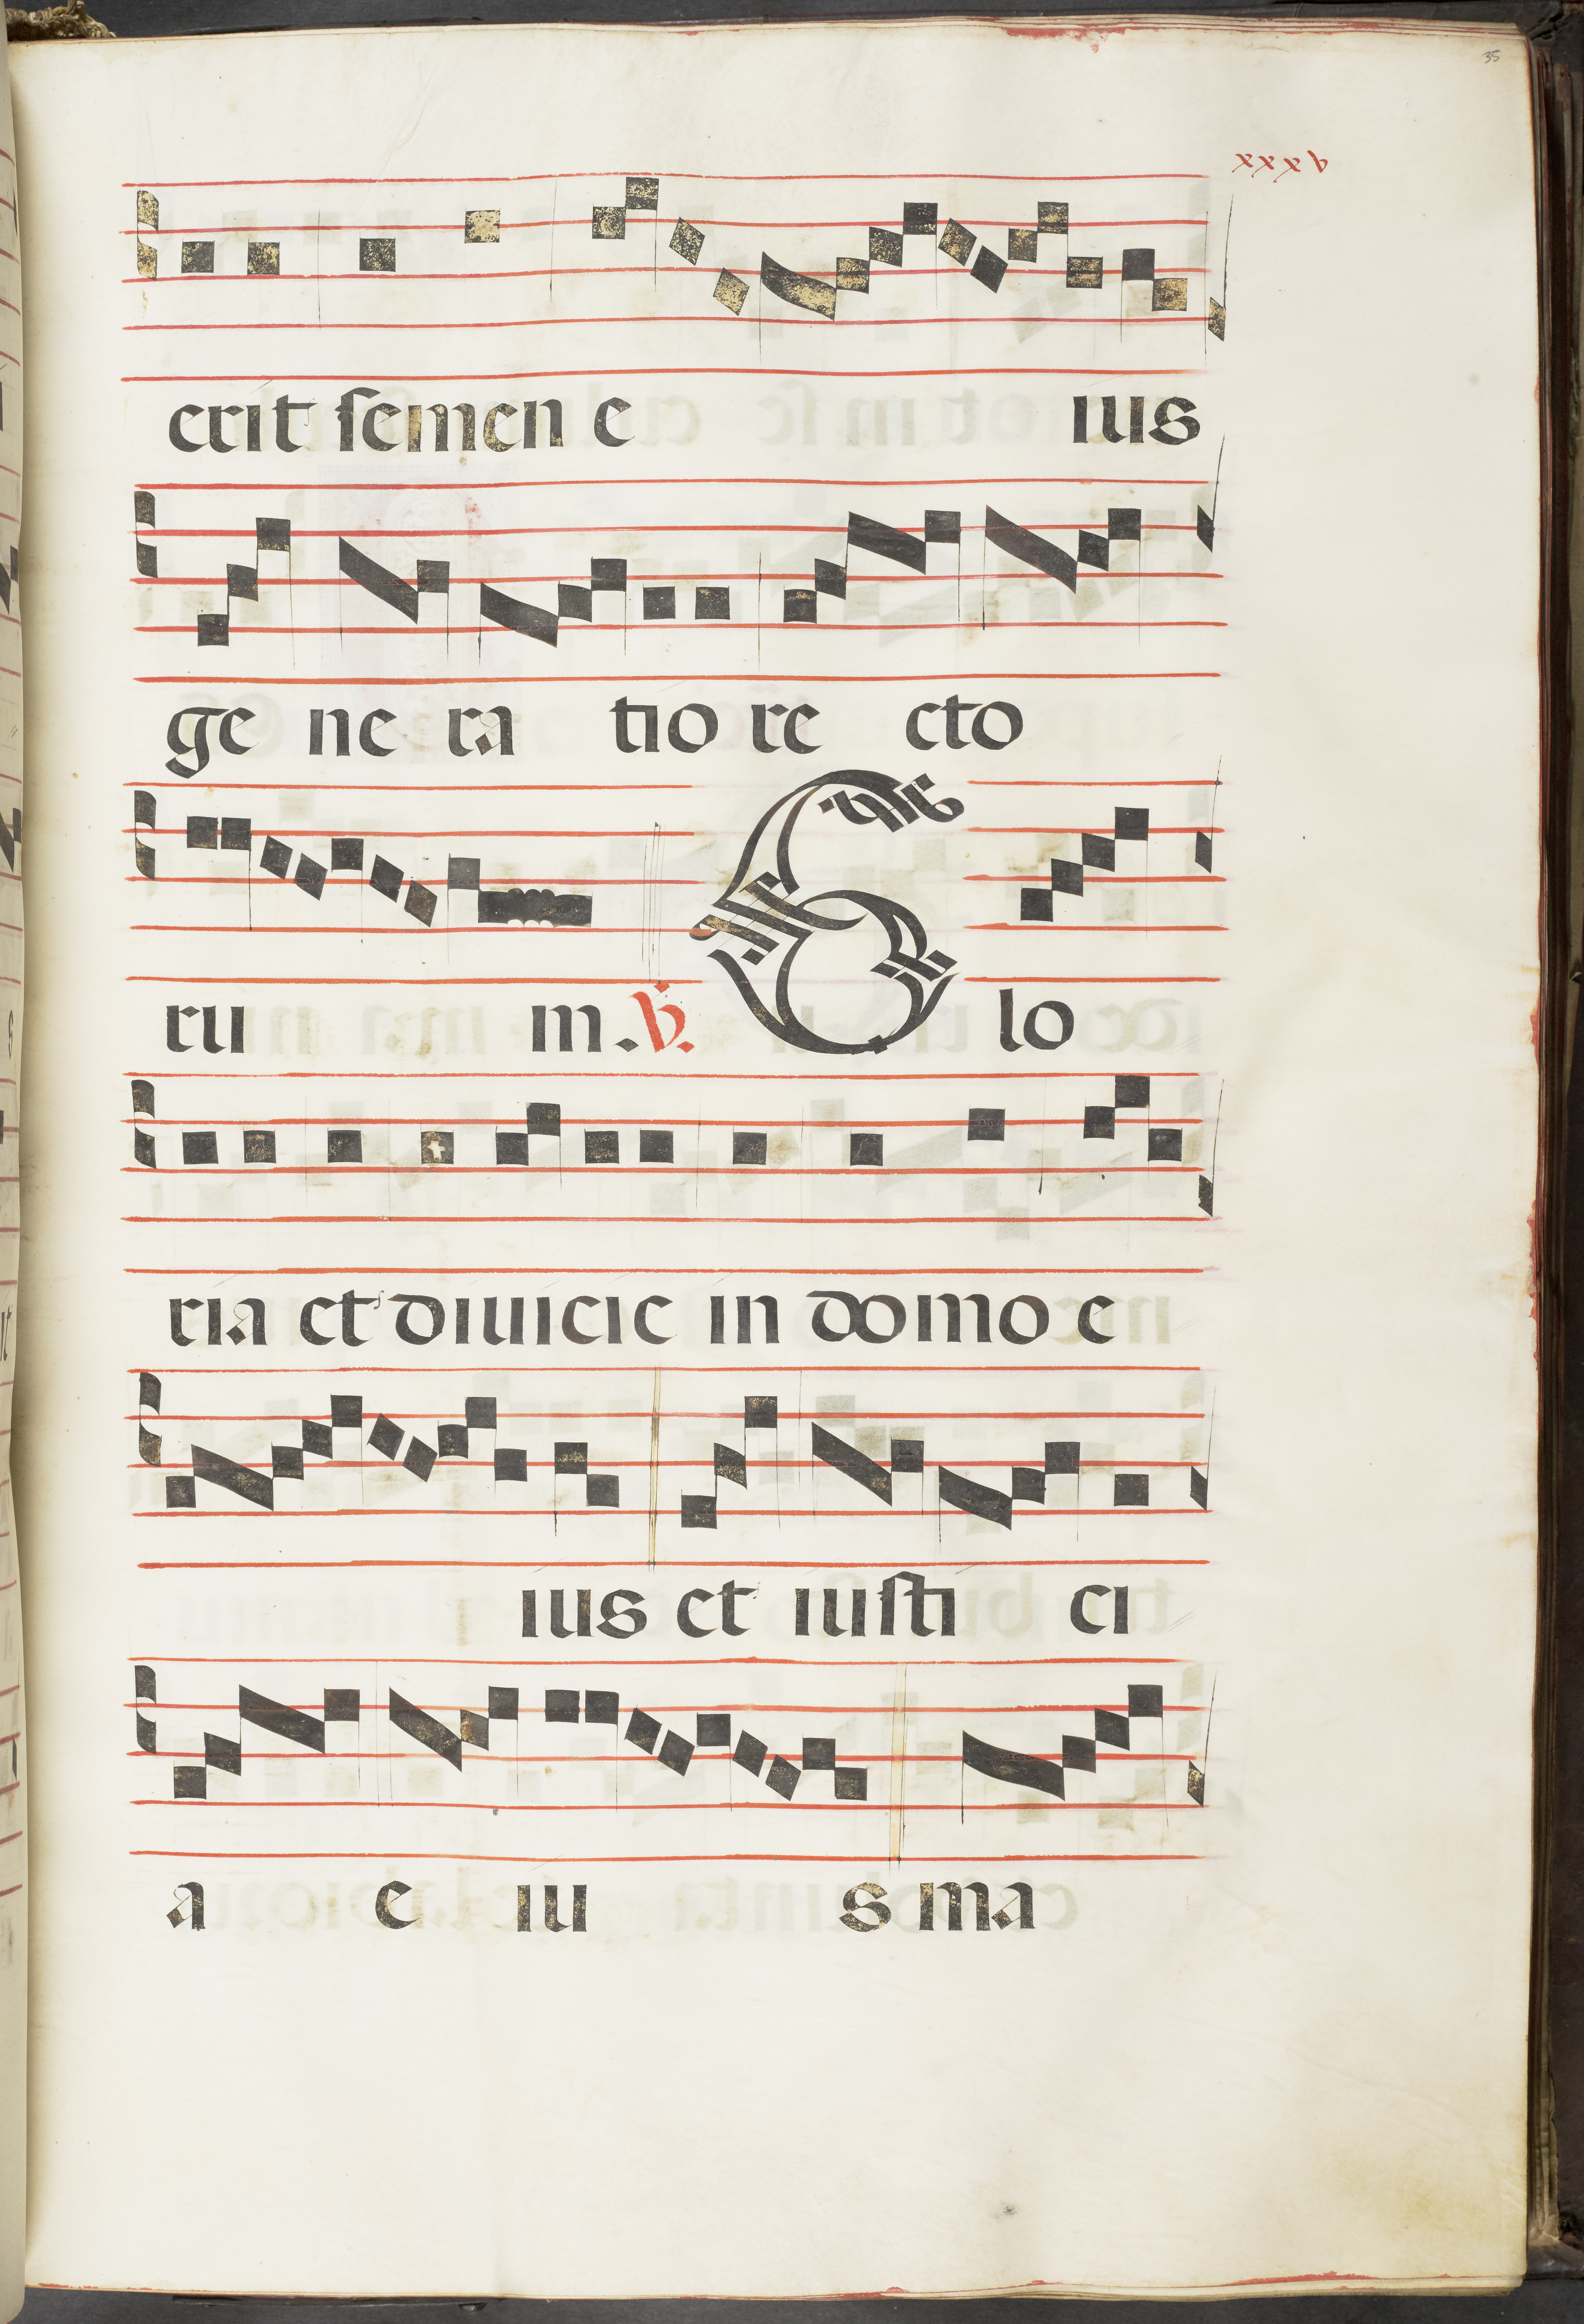 35
xxxv
erit semen e ius
ge ne ra tio re cto
ru m. ℣. G lo
ria et diuicie in domo e
ius et iusti ci
a e iu s ma